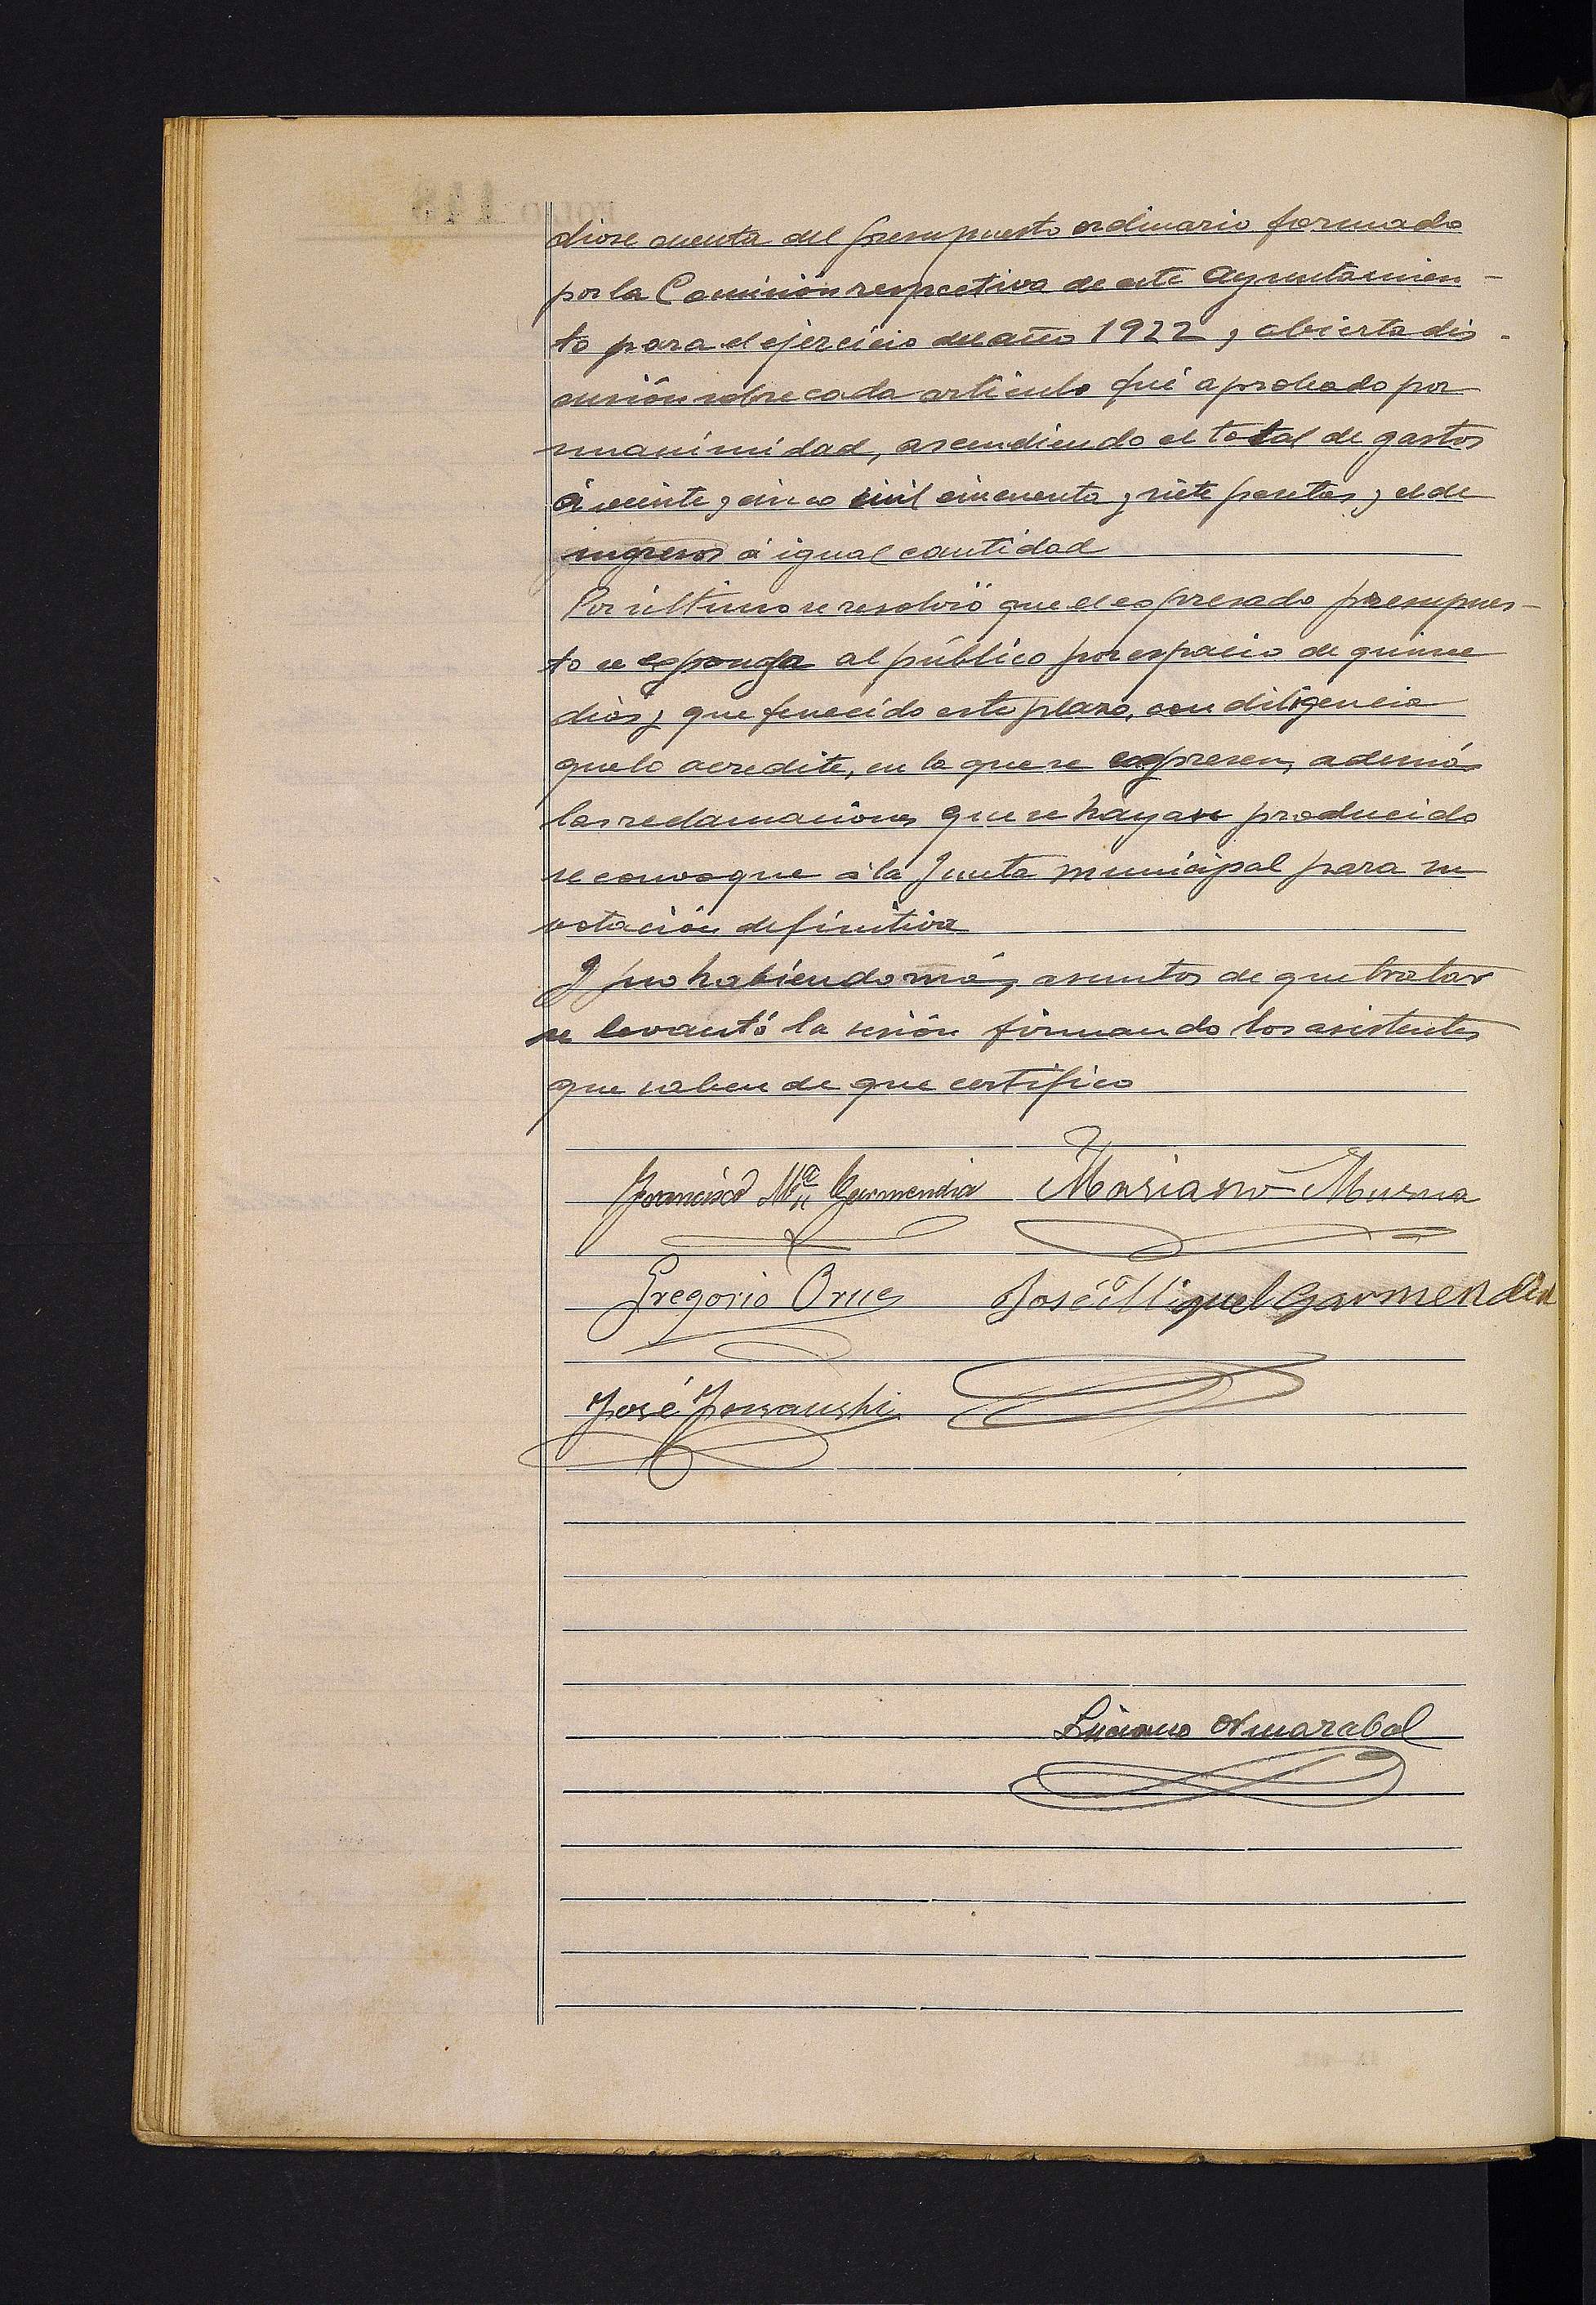 diose cuenta del presupuesto ordinario formado
por la Comisión respectiva de este Ayuntamien-
to para el ejercicio del año 1922 y abierta dis-
cusión sobre cada artículo fué aprobado por
unanimidad, ascendiendo el total de gastos
á veinte y cinco mil cincuenta y siete pesetas y el de
ingresos á igual cantidad
Por último se resolvió que el expresado presupues-
to se exponga al público por espacio de quince
dias y que fenecido este plazo, con diligencia
que lo acredite, en la que se expresen, además
las reclamaciones que se hayan producido
se convoque á la Junta municipal para su
votación definitiva
Y no habiendo más asuntos de que tratar
se levantó la sesión firmando los asistentes
que saben de que certifico
Francisco Mª Garmendia Mariano Murua
Gregorio Orue José Miguel Garmendia
José
Luciano Amarabal